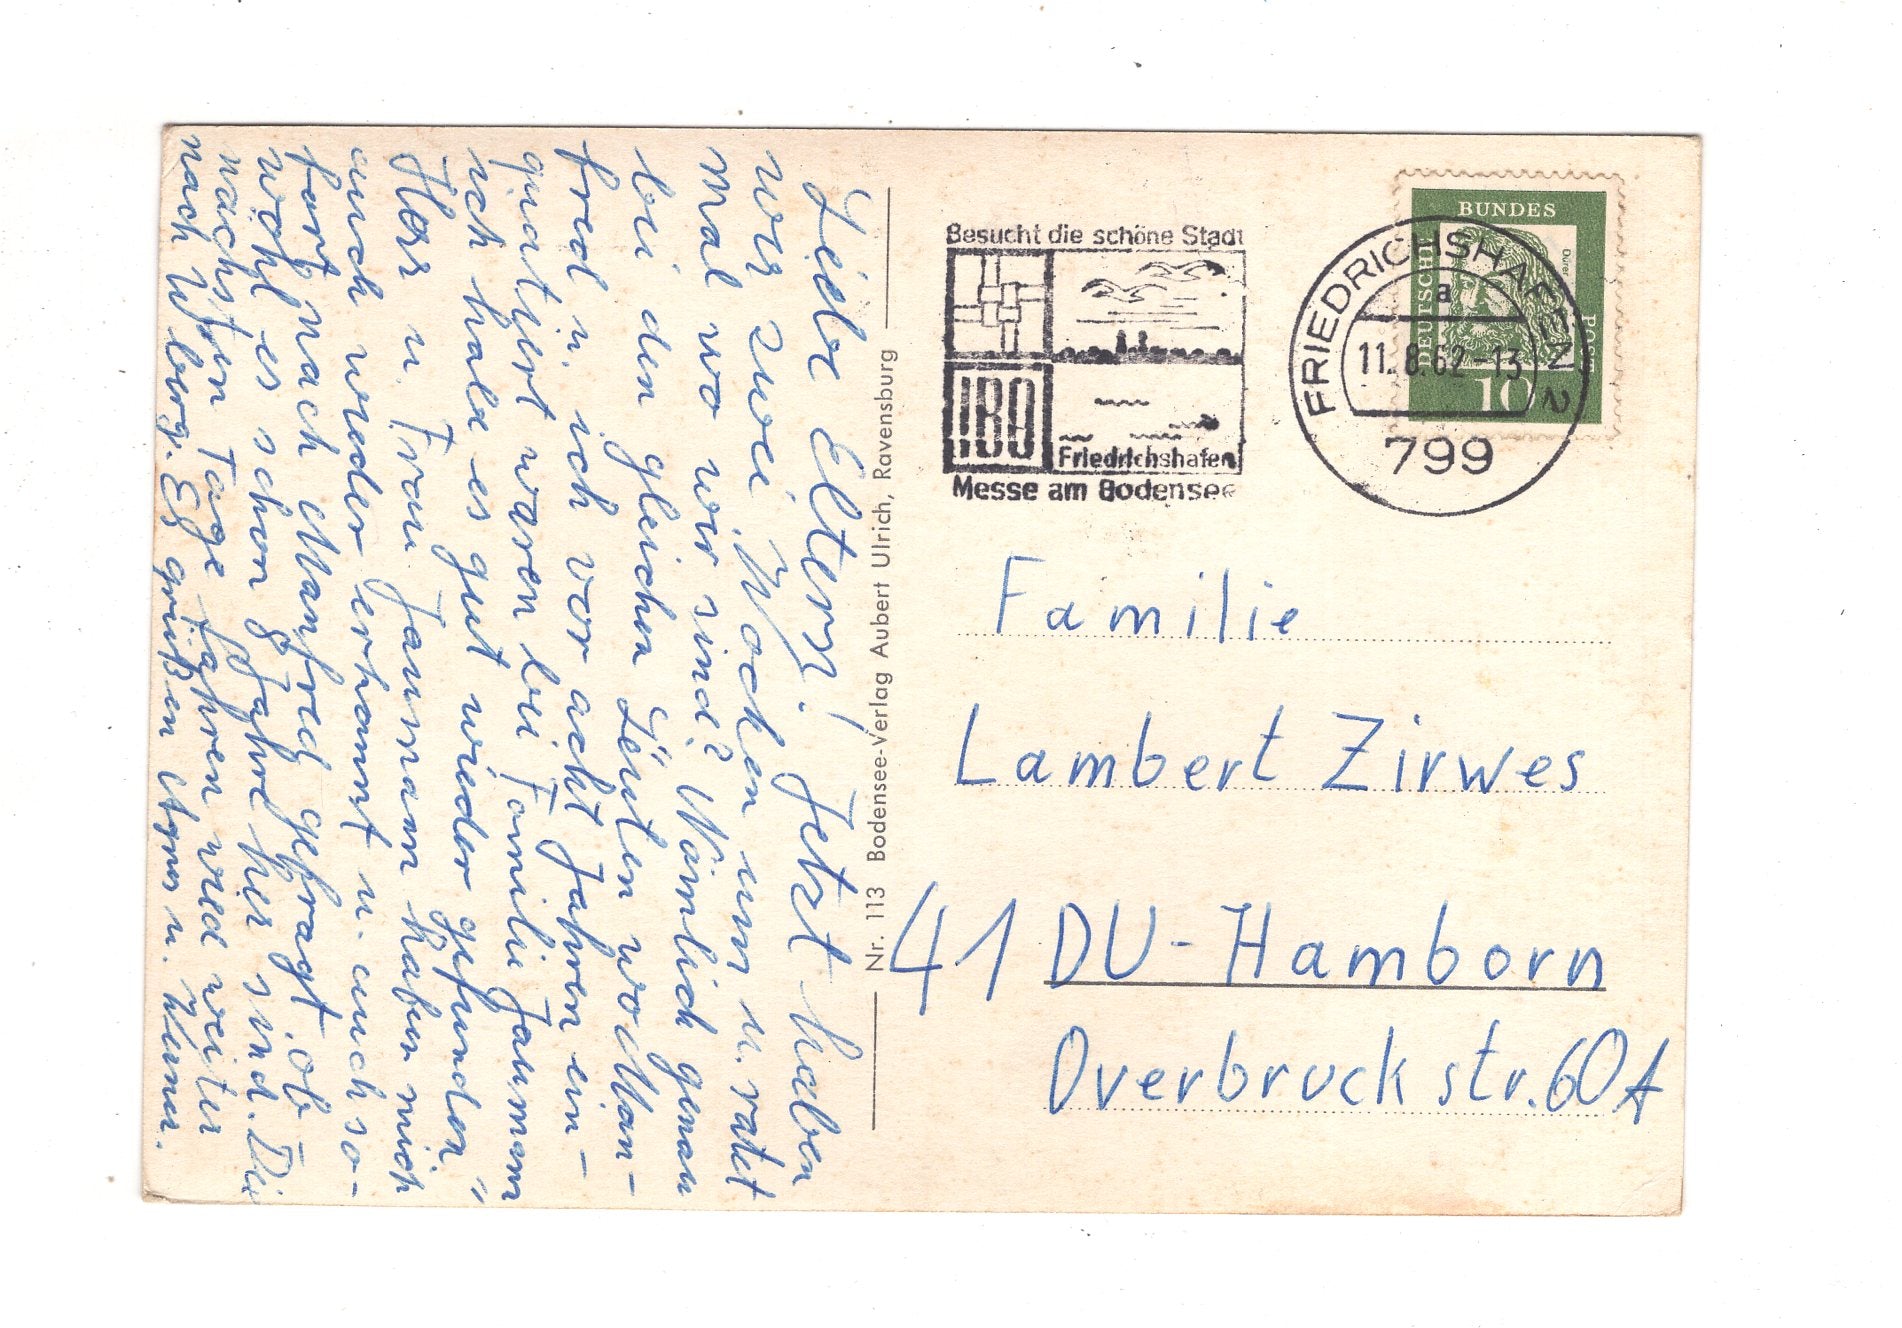 Liebe Eltern! Jetzt haben
wir zwei Wochen um u. ratet
mal wo wir sind? Nämlich genau
bei den gleichen Leuten wo Man-
fred u. ich vor acht Jahren ein-
quatiert waren bei Familie Jaumann
ich habe es gut wieder gefunden"
Herr u. Frau Jaumann haben mich
auch wieder erkannt u. auch so-
fort nach Manfred gefragt, ob
wohl es schon 8 Jahre her sind. Die
nächsten Tage fahren wir weiter
nach Ü berg. Es grüßen Agnes u.
Nr. 113 Bodensee-Verlag Aubert Ulrich, Ravensburg
Besucht die schöne Stadt
IBO
Friedrichshafen
Messe am Bodensee
FRIEDRICHSHAFEN 2
a
11.8.62-13
799
DEUTSCHE
BUNDES
POST
Dürer
10
Familie
Lambert Zirwes
41 DU-Hamborn
Overbruckstr. 60A